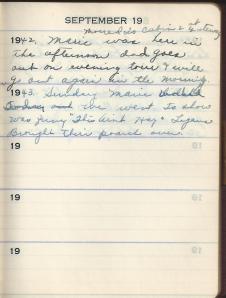 SEPTEMBER 19
moved to Cabin 2 at Gateway
1942. Marie was here in
the afternoon Dad goes
out on evening tour & will
go out again in the morning
1943. Sunday Marie
and we went to show
was funny "It Ain't Hay"
Brought their pooch over.
19
19
19